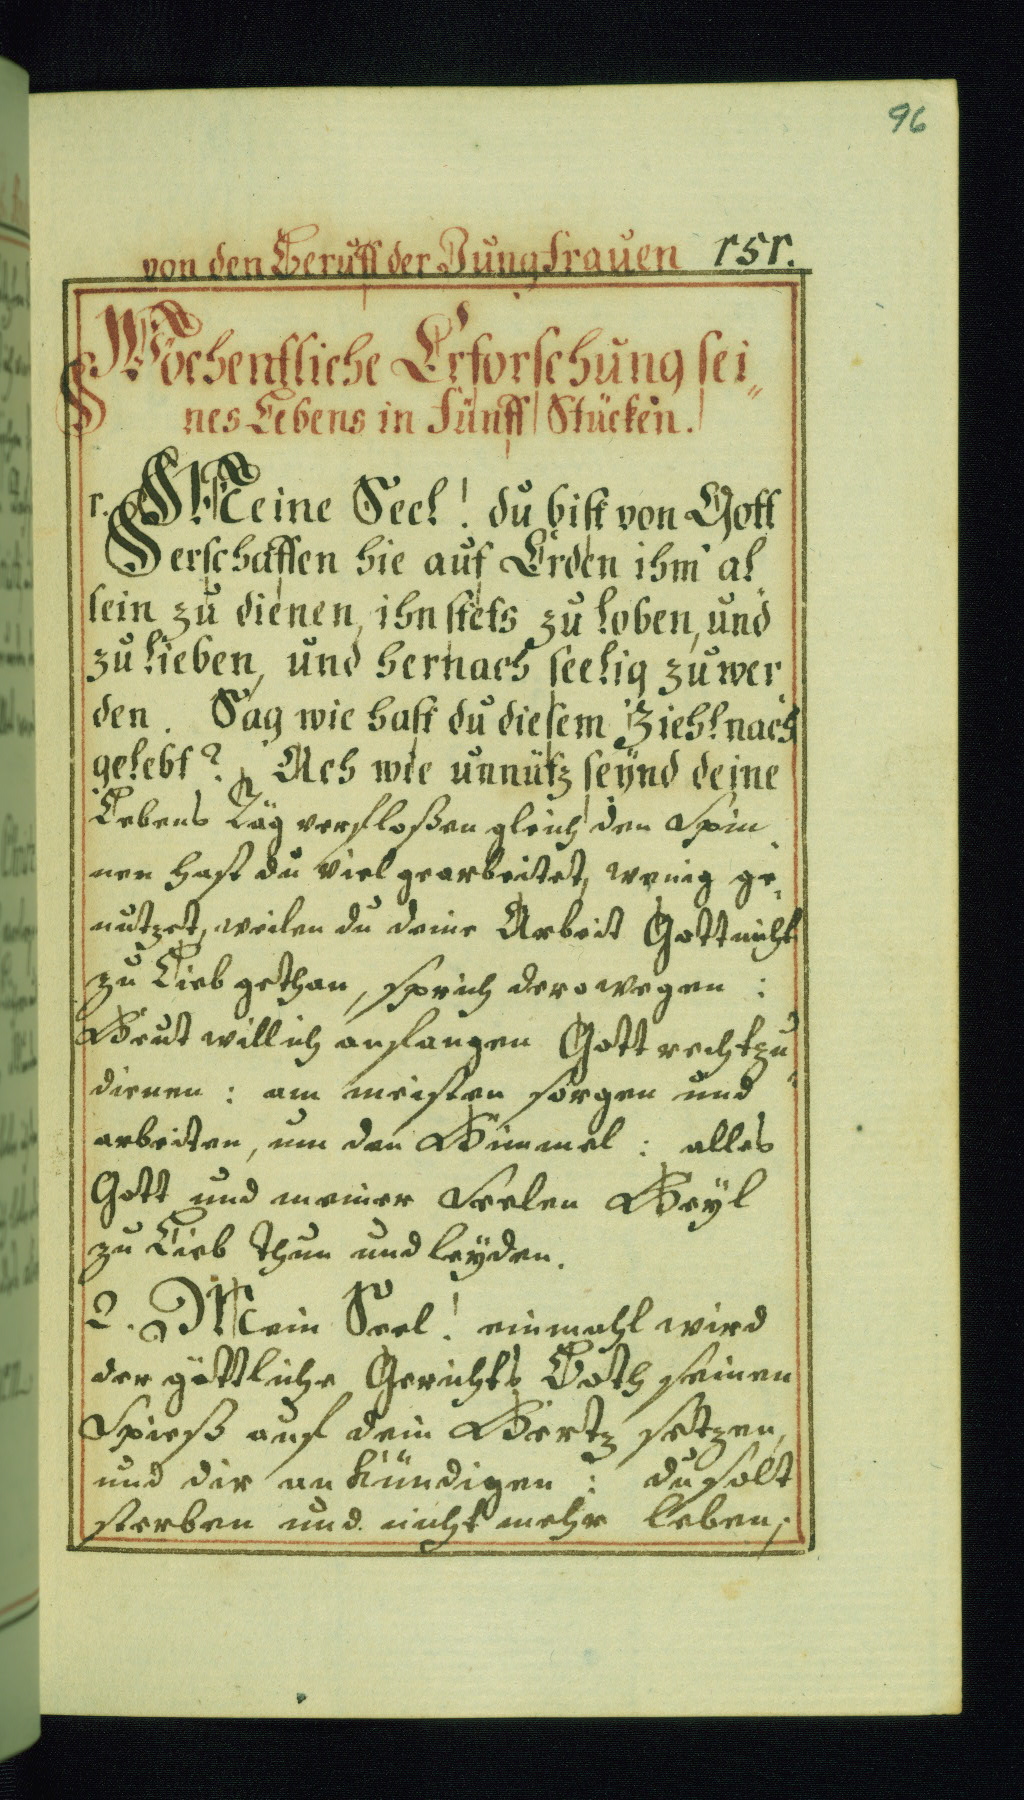 96
von den Beruff der Jungfrauen 151.
Wochentliche Erforschung sei„
nes Lebens in Fünff Stücken.
1. Meine Seel! du bist von Gott
erschaffen hie auf Erden ihm al„
lein zu dienen, ihn stets zu loben, und
zu lieben, und hernach seelig zu wer„
den. Sag wie hast du diesem Ziehl nach
gelebt? Ach wie unnütz seynd deine
Lebens Täg verfloßen gleich den Spin„
nen hast du viel gearbeitet, wenig ge„
nutzet, weilen du deine Arbeit Gott nicht
zu Lieb gethan, sprich derowegen:
Heut will ich anfangen Gott recht zu
dienen: am meisten sorgen und
arbeiten, um den Himmel: alles
Gott und meiner Seelen Heyl
zu Lieb thun und leyden.
2. Mein Seel! einmahl wird
der göttliche Gerichts Both seinen
Spieß auf dein Hertz setzen,
und dir ankündigen: du solt
sterben und nicht mehr leben;